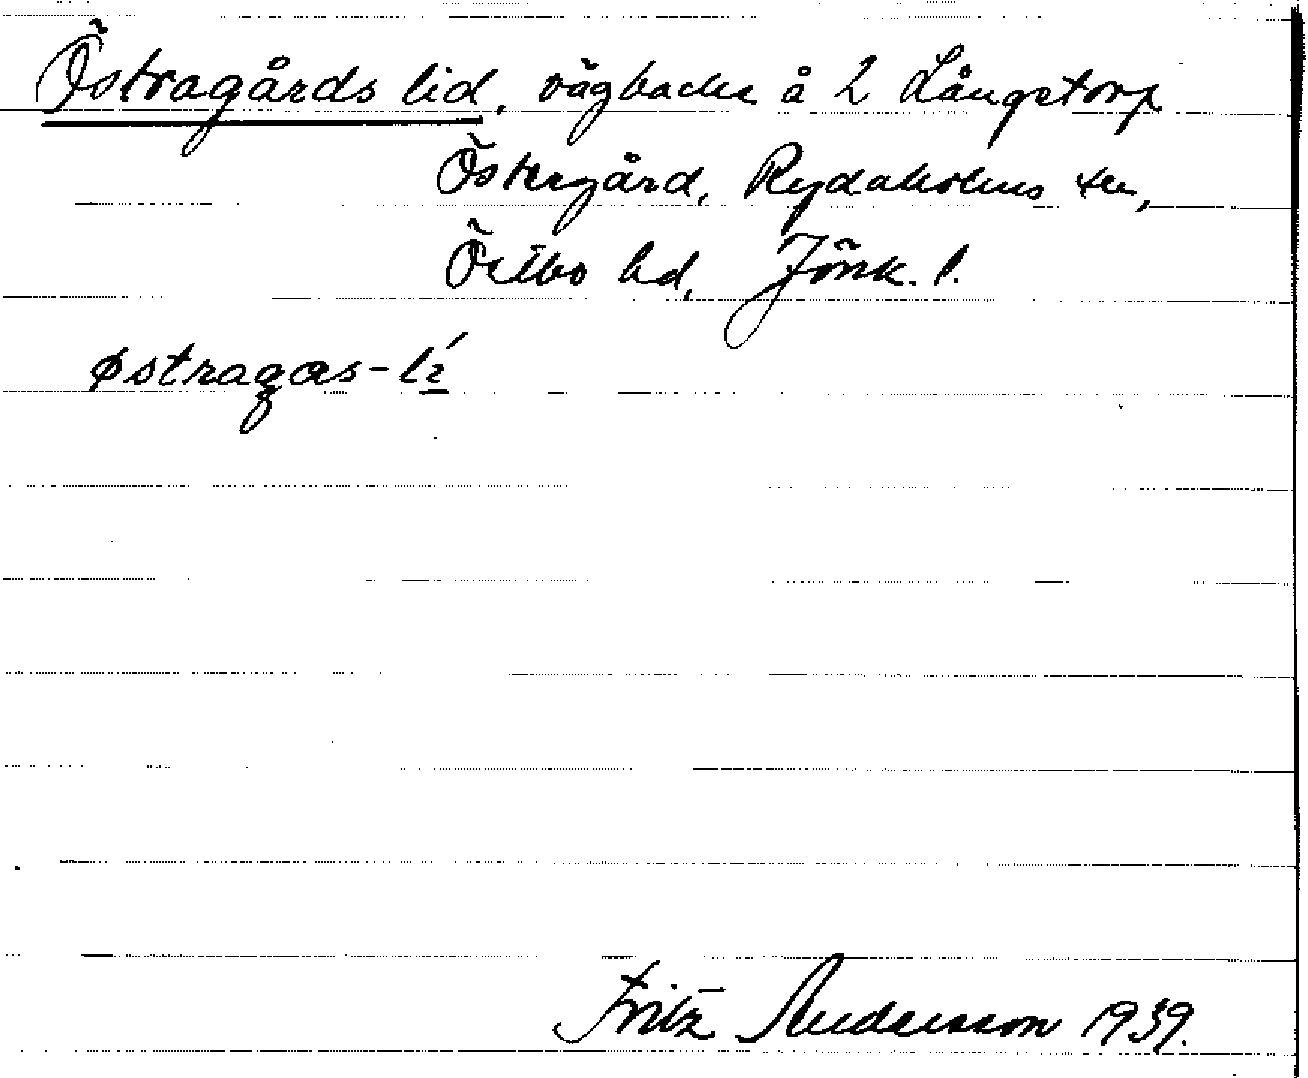 Östragårds lid, vägbacke å 2 Långstorp
Östergård, Rydaholms sn,
Östbo hd, Jönk. l.
østragas-lí
Fritz Andersson 1939.